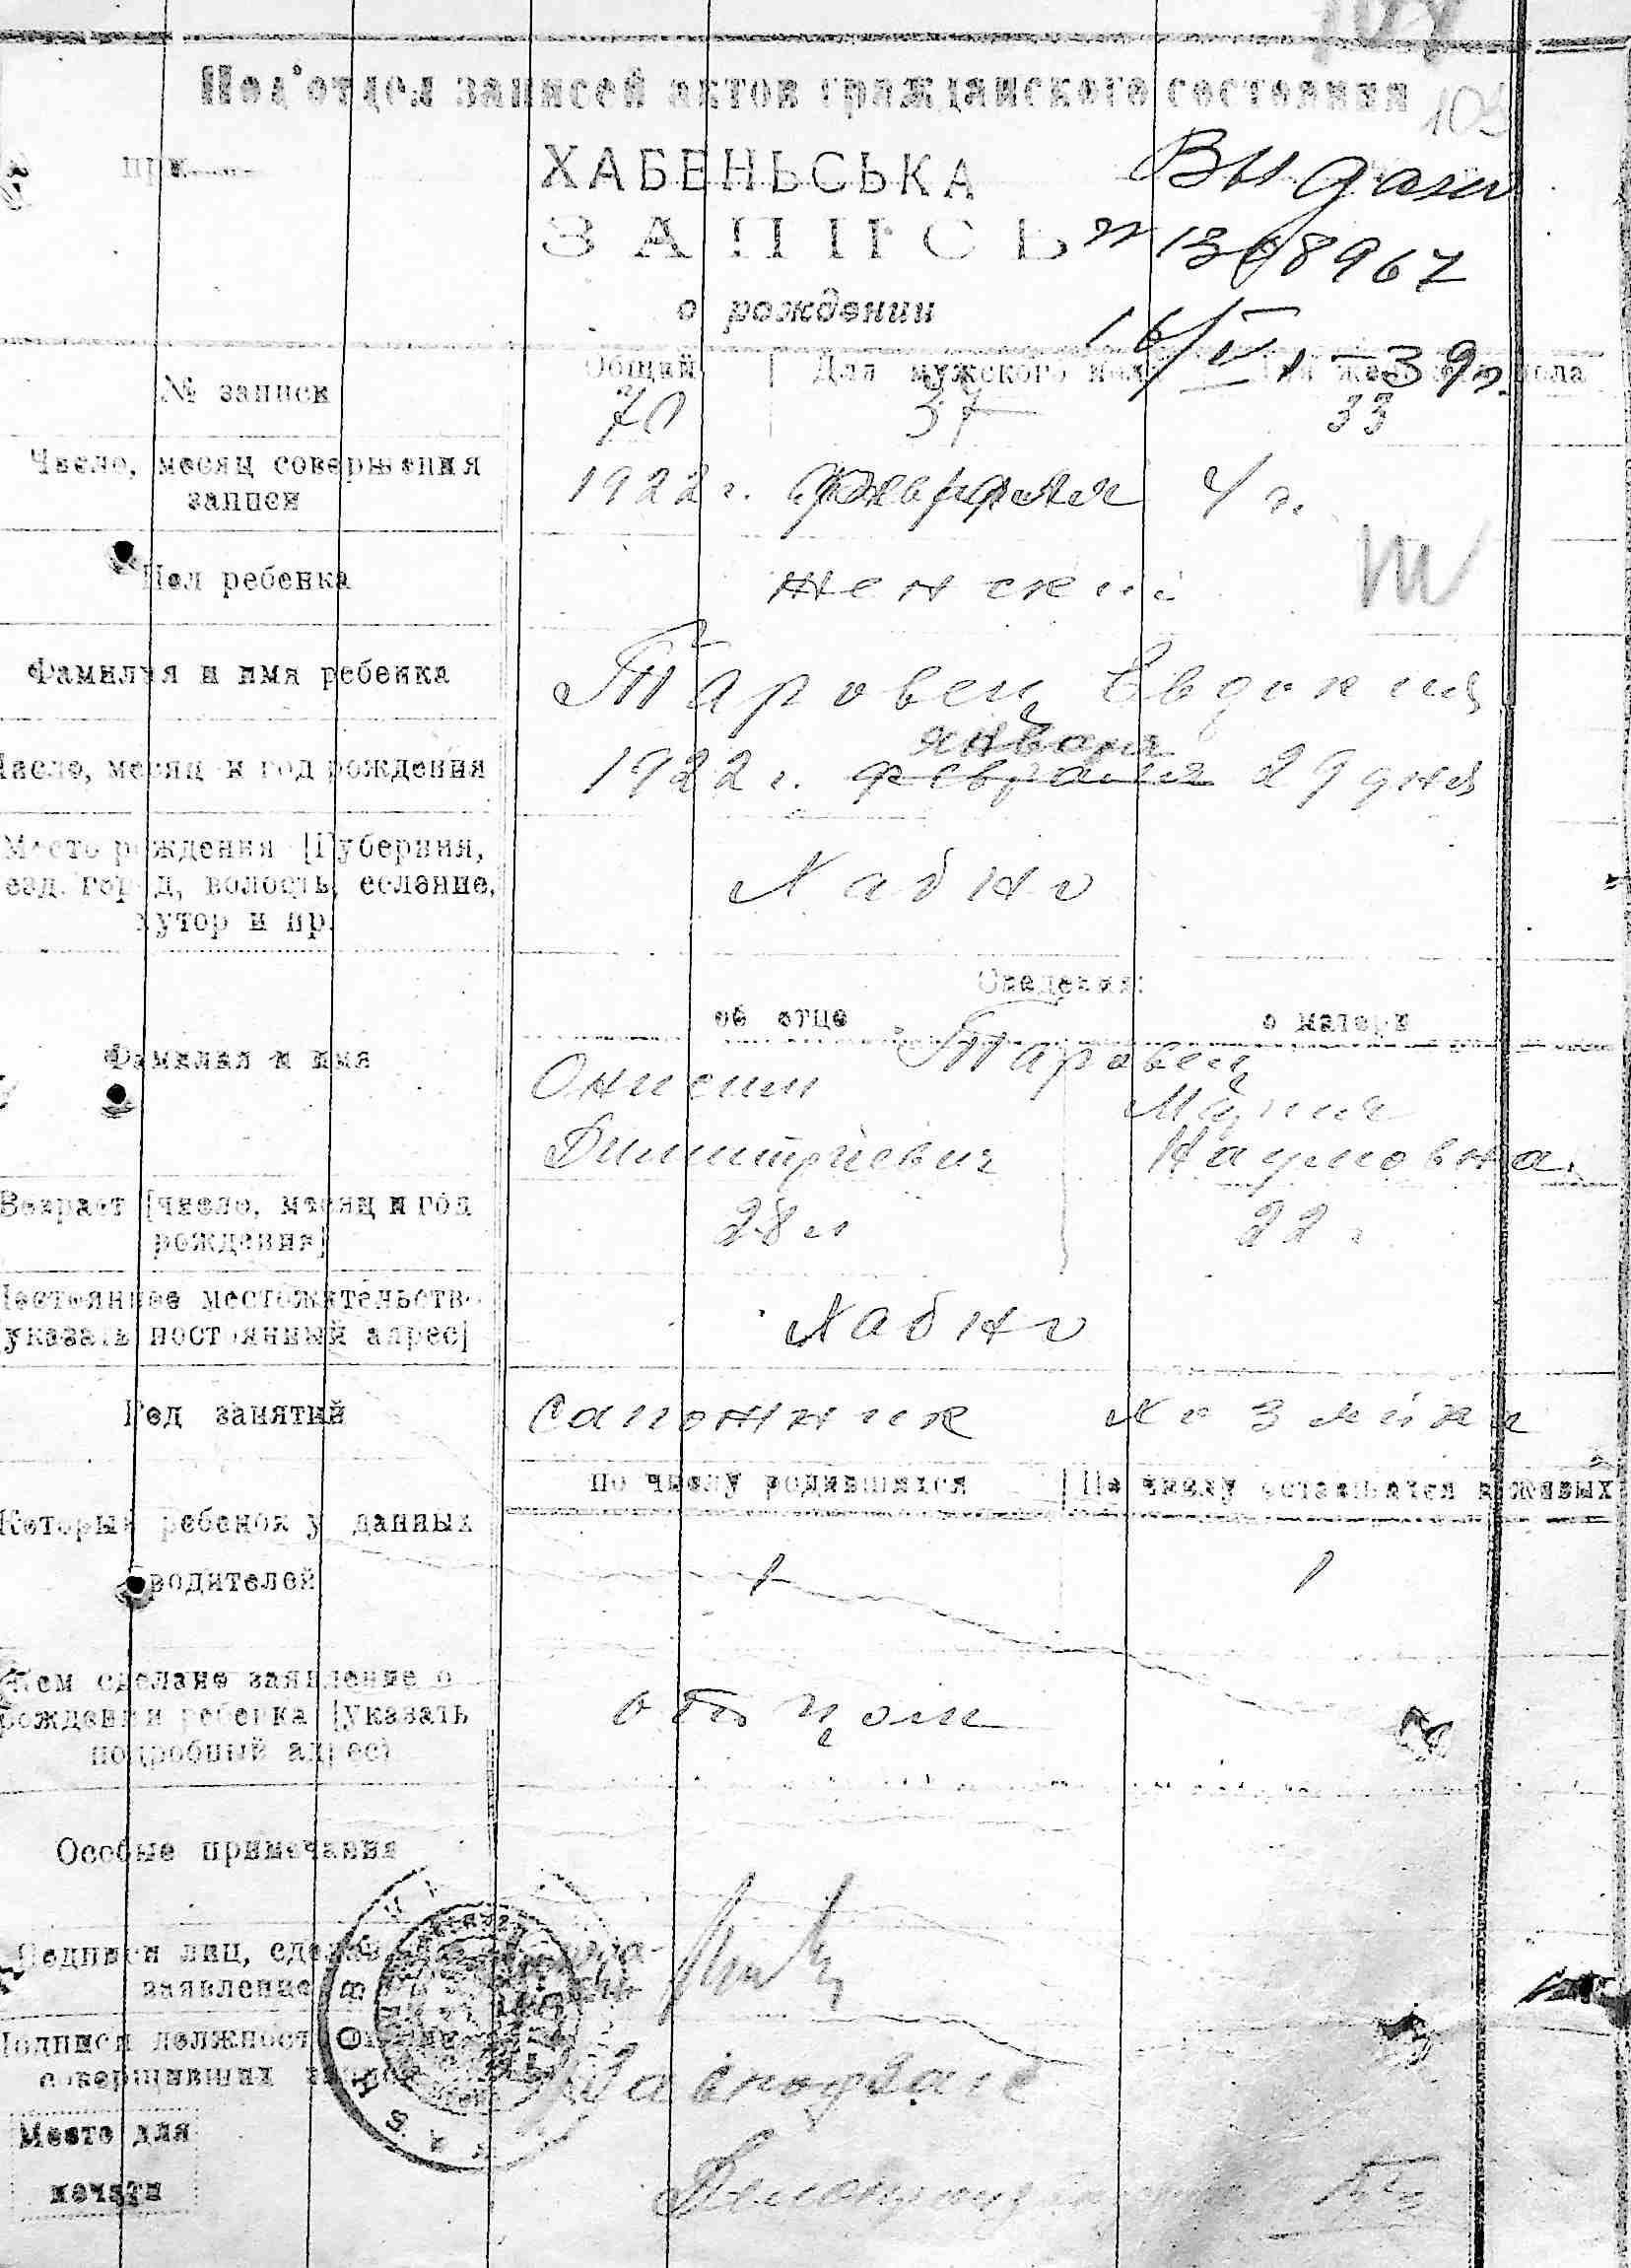 105
Под'отдел записей актов гражданского состояния
при
ХАБЕНЬСЬКА
Выдано
ЗАПИСЬ
о рождении
16/VI-39г.
Общий | Для мужского пола | Для женского пола
№ записи 70 37 33
Число, месяц совершения записи 1922 г. февраля 4 г.
Пол ребенка женский
Фамилия и имя ребенка Таровец Евдокия
января
Число, месяц и год рождения 1922 г. февраля 29 дня
Место рождения [Губерния,
уезд, город, волость, селение,
хутор и пр. Хабно
Сведения:
об отце о матери
Таровец
Фамилия и имя Онисим Мария
Димитриевич Наумовна
Возраст [число, месяц и год
рождения] 28 л 22 г.
Постоянное местожительство
[указать постоянный адрес] Хабно
Род занятий сапожник хозяйка
По числу родившихся | По числу оставшихся в живых
Который ребенок у данных
родителей 1 1
Кем сделано заявление о
рождении ребенка [указать
подробный адрес] отцом
Особые примечания
Подписи лиц, сделавших
заявление
Подписи должностных лиц
совершивших запись
Место для
печати